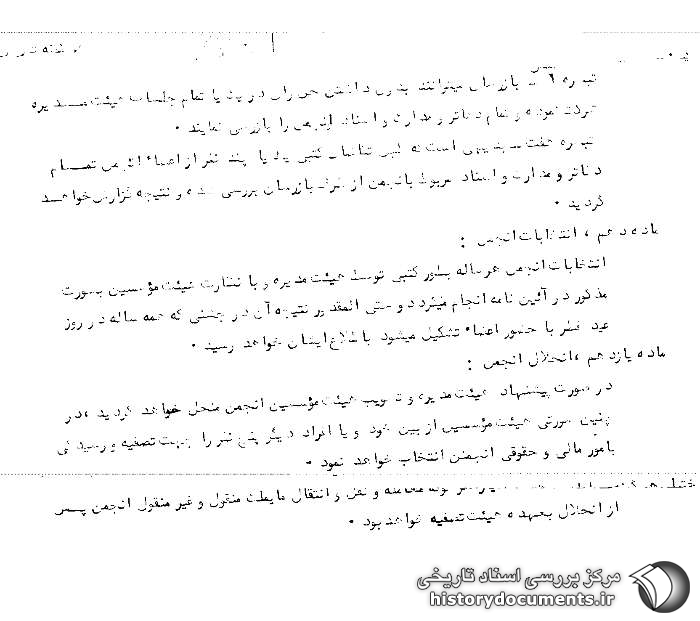 تبصره ۶ ـ بازرسان میتوانند بدون داشتن حق رأی در یک یا تمام جلسات هیئت مدیره
شرکت نموده و تمام دفاتر و مدارک و اسناد انجمن را بازرسی نمایند .
تبصره هفت ـ بدیهی است که طبق تقاضای کتبی یک یا چند نفر از اعضاء انجمن تمام
دفاتر و مدارک و اسناد مربوط بانجمن از طرف بازرسان بررسی شده و نتیجه گزارش خواهد
گردید .
ماده دهم ، انتخابات انجمن :
انتخابات انجمن هر ساله بطور کتبی توسط هیئت مدیره و با نظارت هیئت مؤسسین بصورت
مذکور در آئین نامه انجام میگیرد و حتی المقدور نتیجه آن در جشنی که همه ساله در روز
عید فطر با حضور اعضاء تشکیل میشود باطلاع ایشان خواهد رسید .
ماده یازدهم ، انحلال انجمن :
در صورت پیشنهاد هیئت مدیره و تصویب هیئت مؤسسین انجمن منحل خواهد گردید ، در
چنین صورتی هیئت مؤسسین از بین خود و یا افراد دیگر پنج نفر را بجهت تصفیه و رسیدگی
بامور مالی و حقوقی انجمن انتخاب خواهد نمود .
معامله و نقل و انتقال مایملک منقول و غیر منقول انجمن پس
از انحلال بعهده هیئت تصفیه خواهد بود .
مرکز بررسی اسناد تاریخی
historydocuments.ir